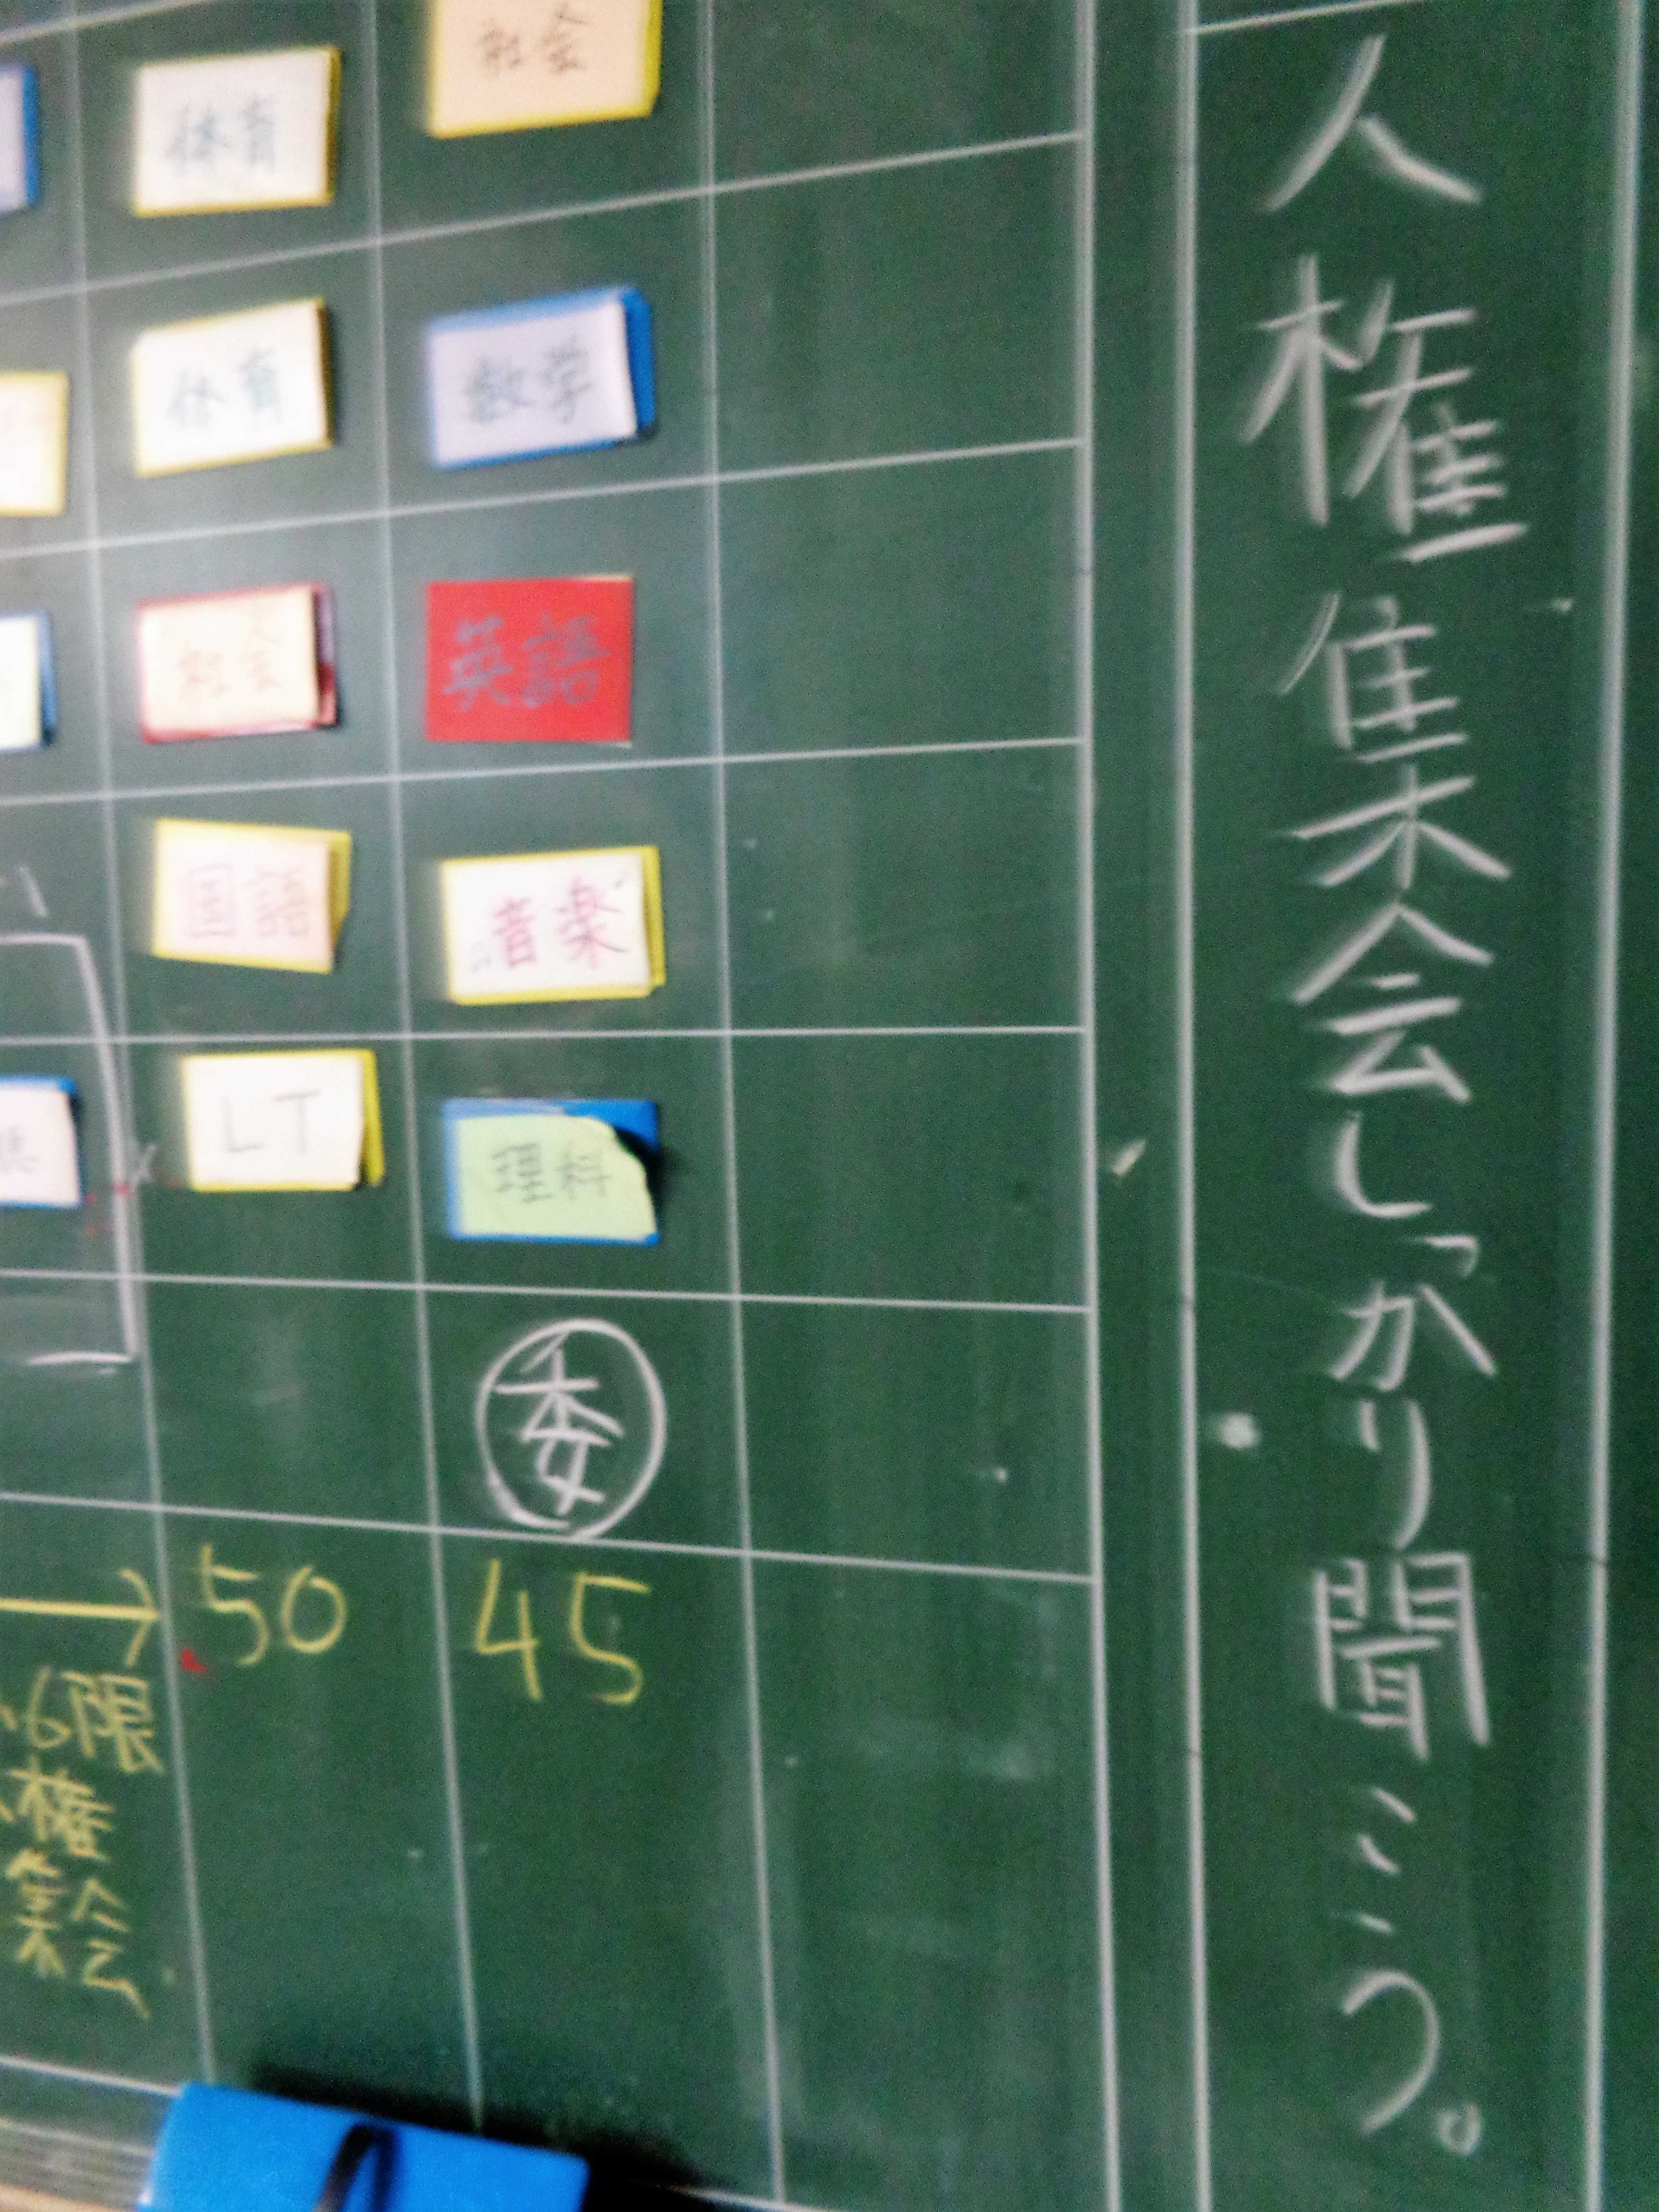 人権集会しっかり聞こう。
社会
数学
英語
音楽
理科
委
45
体育
体育
社会
国語
LT
50
6限
権
集会